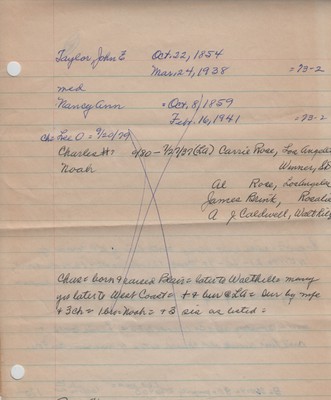 Taylor, John E Oct. 22, 1854
Mar. 24, 1938 = 73-2
med
Nancy Ann = Oct. 8, 1859
Feb. 16, 1941 = 73-2
Ch: Lee O = 9/20/79
Charles H = 4/80 - 7/27/37 (LA) Carrie Rose, Los Angeles
Noah Winner, SD
Al Rose, Los Angeles
James Brink, Rosalie
A J Caldwell, Walthill
Chas = born & raised Blair = later to Walthill = many
yrs later to West Coast = + & bur @ LA = Sur by wife
& 3 ch = 1 bro Noah = & 3 sis as listed =